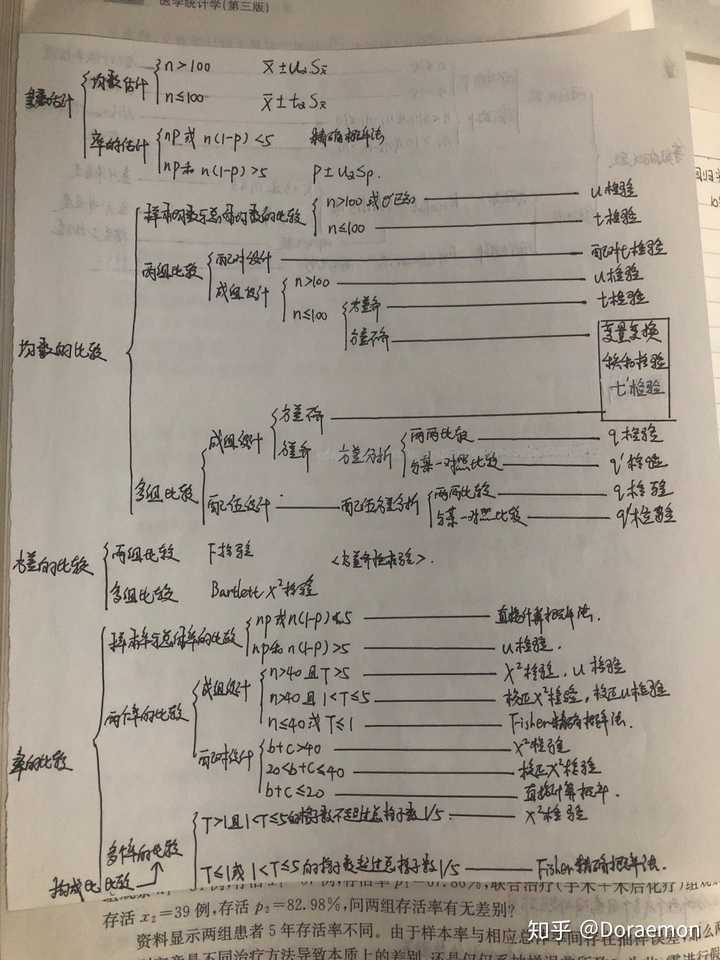 医学统计学(第三版)
参数估计
均数估计
n>100 x̄±uαSx̄
n≤100 x̄±tαSx̄
率的估计
np或n(1-p)<5 精确概率法
np和n(1-p)>5 p±uαSp.
均数的比较
样本均数与总体均数的比较
n>100或σ已知 u检验
n≤100 t检验
两组比较
配对设计 配对t检验
成组设计
n>100 u检验
n≤100
方差齐 t检验
方差不齐
变量变换
秩和检验
t'检验
多组比较
成组设计
方差不齐
方差齐 方差分析
两两比较 q检验
与某一对照比较 q'检验
配伍设计 配伍方差分析
两两比较 q检验
与某一对照比较 q'检验
方差的比较
两组比较 F检验 <方差齐性检验>.
多组比较 Bartlett X²检验
率的比较
样本率与总体率的比较
np或n(1-p)≤5 直接计算概率法.
np和n(1-p)>5 u检验.
两个率的比较
成组设计
n>40且T>5 X²检验, u检验
n>40且1<T≤5 校正X²检验, 校正u检验
n≤40或T≤1 Fisher精确概率法.
配对设计
b+c>40 X²检验
20<b+c≤40 校正X²检验
b+c≤20 直接计算概率.
多个率的比较
T>1且1<T≤5的格子数不超过总格子数1/5. X²检验
T≤1或1<T≤5的格子数超过总格子数1/5 Fisher精确概率法.
构成比比较
存活 x₂=39例,存活 p₂=82.98%,问两组存活率有无差别?
资料显示两组患者5年存活率不同。由于样本率与相应总体率间存在抽样误差,那么两
知乎 @Doraemon